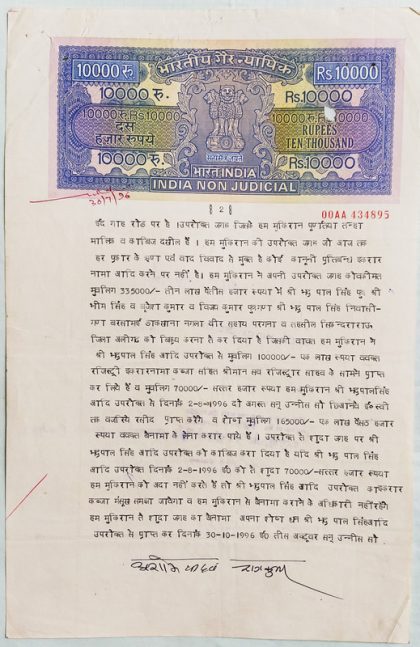 10000 रु
भारतीय गैर न्यायिक
Rs 10000
10000 रु.
Rs.10000
दस
हज़ार रुपये
RUPEES
TEN THOUSAND
सत्यमेव जयते
10000 रु.
Rs.10000
भारत INDIA
INDIA NON JUDICIAL
20/7/96
§ 2 §
00AA 434895
ईद गाह रोड पर है ।उपरोक्त जगह जिसके हम मुकिरान पूर्णतया तन्हा
मालिक व काबिज दखील हैं । हम मुकिरान की उपरोक्त जगह जो आज तक
हर प्रकार के ऋण पर्व वाद विवाद से मुक्त है कोई कानूनी प्रतिबन्ध इकरार
नामा आदि करने पर नहीं है। हम मुकिरान ने अपनी उपरोक्त जगह को कीमत
मुबलिग 335000/- तीन लाख पैंतीस हजार रुपया में श्री भूपाल सिंह पुत्र श्री
भीम सिंह व कुमार व विजय कुमार पुत्रगण श्री भूपाल सिंह निवासी-
गण डाकखाना नगला वीर सहाय परगना व तहसील सिकन्दराराऊ
जिला अलीगढ़ को विक्रय करना तै कर दिया है जिसकी बाबत हम मुकिरान ने
श्री भूपाल सिंह आदि उपरोक्त से मुबलिग 100000/- एक लाख रुपया वक्त
रजिस्ट्री इकरारनामा कब्जा सहित श्रीमान सब रजिस्ट्रार साहब के सामने प्राप्त
कर लिये हैं व मुबलिग 70000/- सत्तर हजार रुपया हम मुकिरान श्री भूपालसिंह
आदि उपरोक्त से दिनांक 2-8-1996 दो अगस्त सन् उन्नीस सौ छियानवे ई0
तक बजरिये रसीद प्राप्त करेंगे व शेष मुबलिग 165000/- एक लाख पैंसठ हजार
रुपया वक्त बैनामा के लेना करार पाये हैं । उपरोक्त तै शुदा जगह पर श्री
भूपाल सिंह आदि उपरोक्त को काबिज करा दिया है यदि श्री भूपाल सिंह
आदि उपरोक्त दिनांक 2-8-1996 ई0 को तै शुदा 70000/- सत्तर हजार रुपया
हम मुकिरान को अदा नहीं करते हैं तो श्री भूपाल सिंह आदि उपरोक्त का इकरार
कब्जा मंसूख समझा जावेगा व हम मुकिरान से बैनामा कराने के अधिकारी नहीं रहेंगे
हम मुकिरान तै शुदा जगह का बैनामा अपना शेष धन श्री भूपाल सिंह आदि
उपरोक्त से प्राप्त कर दिनांक 30-10-1996 ई0 तीस अक्टूबर सन् उन्नीस सौ